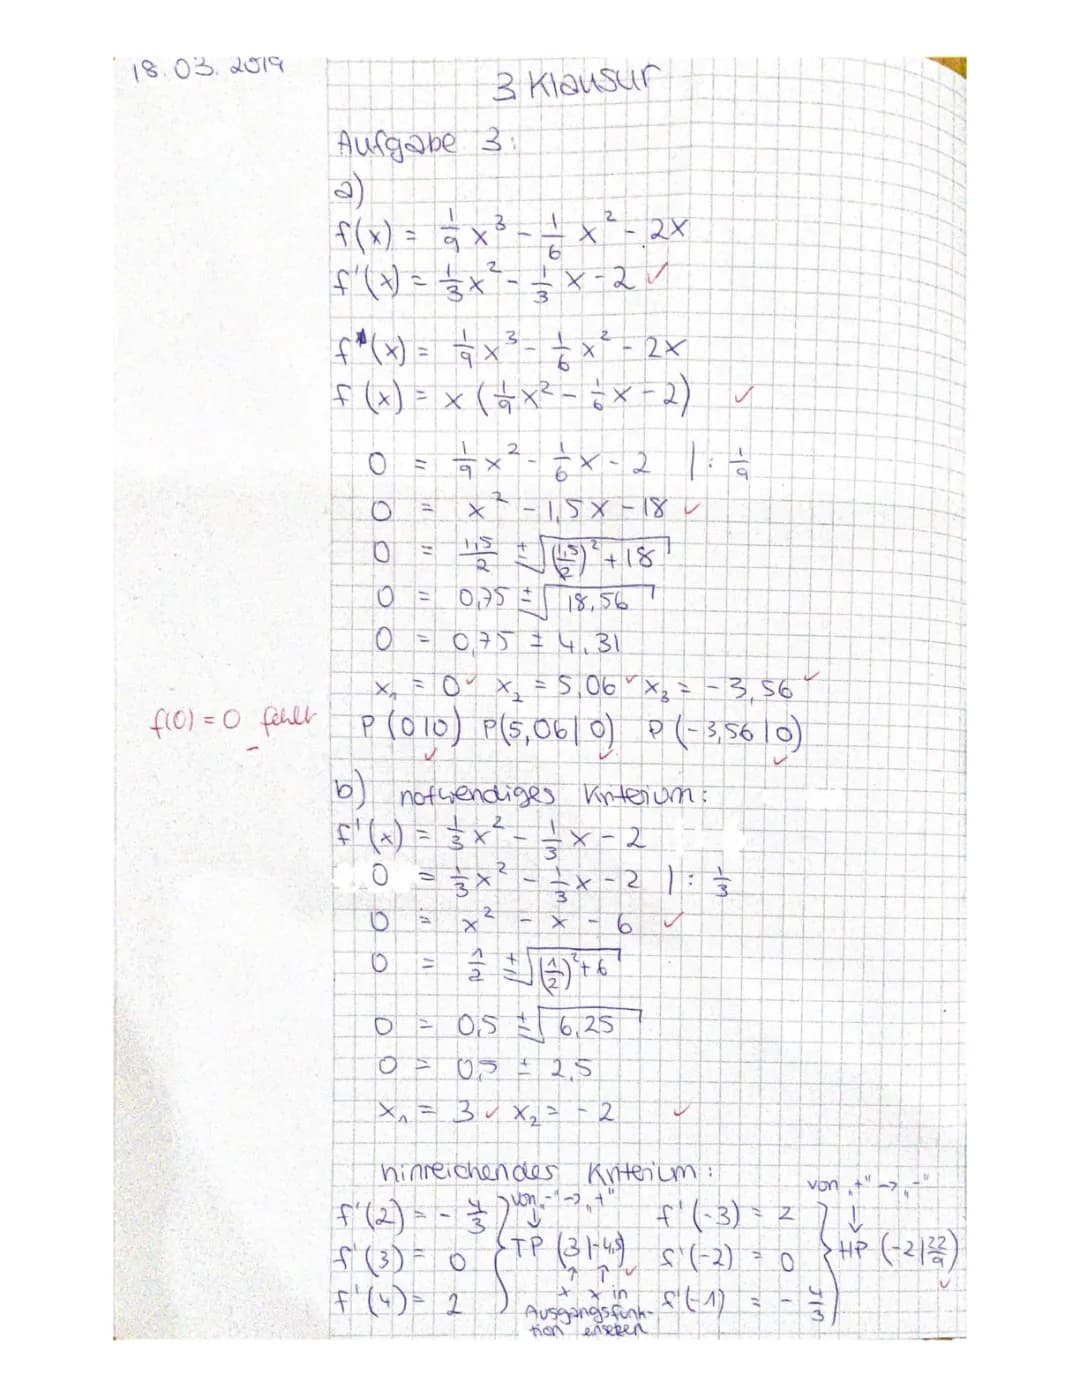 18.03.2019
3 Klausur
Aufgabe 3:
a)
f(x) = 1/9 x³ - 1/6 x² - 2x
f'(x) = 1/3 x² - 1/3 x - 2 ✓
f(x) = 1/9 x³ - 1/6 x² - 2x
f(x) = x (1/9 x² - 1/6 x - 2) ✓
0 = 1/9 x² - 1/6 x - 2 | : 1/9
0 = x² - 1,5x - 18 ✓
0 = 1,5/2 ± √((1,5/2)² + 18)
0 = 0,75 ± √18,56
0 = 0,75 ± 4,31
x₁ = 0 ✓ x₂ = 5,06 ✓ x₃ = -3,56 ✓
f(0) = 0 fehlt P(0|0) ✓ P(5,06|0) ✓ P(-3,56|0) ✓
b) notwendiges Kriterium:
f'(x) = 1/3 x² - 1/3 x - 2
0 = 1/3 x² - 1/3 x - 2 | : 1/3
0 = x² - x - 6 ✓
0 = 1/2 ± √((1/2)² + 6)
0 = 0,5 ± √6,25
0 = 0,5 ± 2,5
x₁ = 3 ✓ x₂ = -2 ✓
hinreichendes Kriterium:
f'(2) = - 4/3 von „-" → „+" f'(-3) = 2 von „+" → „-"
f'(3) = 0 TP (3|-4,5) ✓ f'(-2) = 0 HP (-2|22/9) ✓
f'(4) = 2 x x in f'(-1) = - 4/3
Ausgangsfunk-
tion ensetzen